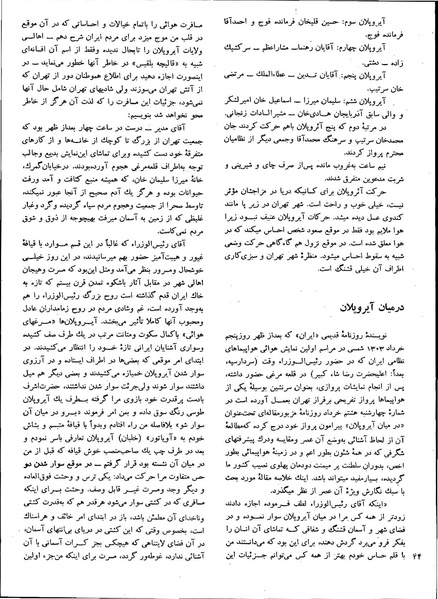 آیروپلان سوم: حسین قلیخان فرمانده فوج و احمدآقا
فرمانده فوج.
آیروپلان چهارم: آقایان رهنما ـ مشاراعظم ـ سرکشیک
زاده ـ دشتی.
آیروپلان پنجم: آقایان تدین ـ عطاءالملک ـ مرتضی
خان سرتیپ.
آیروپلان ششم: سلیمان میرزا ـ اسماعیل خان امیرلشکر
و والی سابق آذربایجان هادی‌خان ـ مشیرالسادات زنجانی.
در مرتبهٔ دوم که پنج آئروپلان باهم حرکت کردند جان
محمدخان سرتیپ و سرهنگ محمدآقا وجمعی دیگر از نظامیان
محترم پرواز کردند.
نیم ساعت بغروب مانده پس‌از صرف چای و شیرینی و
شربت مدعوین متفرق شدند.
حرکت آئروپلان برای کسانیکه دریا در مزاجشان مؤثر
نیست، خیلی خوب و راحت است. شهر تهران در زیر پا مانند
کندوی عسل دیده میشد. حرکات آیروپلان عنیف نبود زیرا
هوا ملایم بود فقط در موقع صعود شخص احساس میکند که در
هوا معلق شده است. در موقع نزول هم گاه‌گاهی حرکت وضعی
شبیه به سقوط احساس میشود. منظرهٔ شهر تهران و سبزی‌کاری
اطراف آن خیلی قشنگ است.
درمیان آیروپلان
نویسندهٔ روزنامهٔ قدیمی «ایران» که بعداز ظهر روزپنجم
خرداد ۱۳۰۳ شمسی در مراسم اولین نمایش هوائی هواپیماهای
نظامی ایران که در حضور رئیس‌الوزراء وقت (سردارسپه،
بعداً: اعلیحضرت رضا شاه کبیر) در قلعه مرغی حضور داشته،
پس از انجام نمایشات پروازی، بعنوان سرنشین بوسیلهٔ یکی از
هواپیماها پرواز تفریحی برفراز تهران بعمل آورده است در
شمارهٔ چهارشنبه هشتم خرداد روزنامهٔ مزبورمقاله‌ای تحت‌عنوان
«در میان آیروپلان» پیرامون پرواز خود درج کرده که‌معالفلا
آن از لحاظ آشنائی بوضع آن عصر ومقایسه ودرک پیشرفتهای
شگرفی که در همهٔ شئون بطور اعم و در زمینهٔ هواپیمائی بطور
اخص، بدوران سلطنت پر میمنت دودمان پهلوی نصیب کشور ما
گردیده، بسیارمفید میتواند باشد. اینک خلاصه مقالهٔ مورد بحث
با سبک نگارش ویژهٔ آن عصر از نظر میگذرد.
«اینکه آقای رئیس‌الوزراء لطف فرموده اجازه دادند
زودتر از همه کس مرا در میان آیروپلان سوار نموده و در
فضای شهر و آسمان قشنگ و شفافی که تماشای آن انسان را
بفکر فرومی‌برد گردش دهند برای این بود که می‌دانستند من
با قلم حساس خودم بهتر از همه کس می‌توانم جزئیات این
مسافرت هوائی را باتمام خیالات و احساساتی که در آن موقع
در قلب من موج میزد برای مردم ایران شرح دهم ـ اهالی
ولایات آیروپلان را تابحال ندیده وفقط از اسم آن افسانه‌ای
شبیه به «قالیچه بلقیس» در خاطر آنها خطور می‌نماید ـ در
اینصورت اجازه دهید برای اطلاع هموطنان دور از تهران که
از آتش تهران می‌سوزند ولی شادیهای تهران شامل حال آنها
نمی‌شود، جزئیات این مسافرت را که لذت آن هرگز از خاطر
محو نخواهد شد بنویسیم:
آقای مدیر ـ درست در ساعت چهار بعداز ظهر بود که
جمعیت تهران از بزرگ تا کوچک از خانه‌ها و از کارهای
متفرقهٔ خود دست کشیده وبرای تماشای این‌نمایش بدیع وجالب
توجه بەاطراف قلعه‌مرغی هجوم آورده‌بودند. درخیابان‌گمرک،
خانهٔ میرزا سلیمان خان، که همیشه منبع کثافت و آمد ورفت
حیوانات بوده و هرگز یک آدم صحیح از آنجا عبور نمیکند،
تاوسط صحرا از جمعیت وهجوم مردم سیاه گردیده وگرد وغبار
غلیظی که از زمین به آسمان میرفت بهیچوجه از ذوق و شوق
مردم نمی‌کاست.
آقای رئیس‌الوزراء که غالباً در این قسم موارد با قیافهٔ
غیور و هیبت‌آمیز حضور بهم میرسانیدند، در این روز خیلی
خوشحال ومسرور بنظر می‌آمد ومثل این‌بود که مسرت وهیجان
اهالی شهر در مقابل آثار باشکوه تمدن قرن بیستم که تازه به
خاک ایران قدم گذاشته است روح بزرگ رئیس‌الوزراء را هم
بوجد آورده است، غم وشادی مردم در روح زمامداران عادل
ومحبوب آنها کاملا تأثیر می‌بخشد. آیروپلان‌ها «مرغهای
هوائی» باکمال سکوت ومتانت مرتب در یک طرف صف کشیده
وسواری آشنایان ایرانی تازهٔ خود را انتظار می‌کشیدند. در
ابتدای امر موقعی که بعضی‌ها در اطراف ایستاده و در آرزوی
سوار شدن آیروپلان خمیازه می‌کشیدند و بعضی دیگر هم میل
داشتند سوار شوند ولی‌جرئت سوار شدن نداشتند، حضرت‌اشرف
بادست پرقدرت خود بازوی مرا گرفته بطرف یک آیروپلان
طوسی رنگ سوق داده و بمن امر فرمودند «برو در میان آن
سوار شو» بلافاصله من راه افتاده وبدواً با قیافهٔ متبسم و بشاش
خودم به «آویاتور» (خلبان) آیروپلان تعارفی یاس نمودم و
بعد در طرف چپ یک صاحبمنصب خوش قیافه که قبل از من
در میان آن نشسته بود قرار گرفتم ـ در موقع سوار شدن دو
حس متفاوت مرا حرکت میداد: یکی ترس و وحشت فوق‌العاده
و دیگر وجد ومسرت غیر قابل وصف. وحشت برای اینکه
مسافری که در کشتی سوار می‌شود هر قدر هم که بقدرت کشتی
وناخدای آن مطمئن باشد، باز در ابتدای امر خائف و هراسناک
است، بخصوص وقتی که این کشتی در دریای بی‌انتهای آسمان،
در آن فضای لایتناهی که هیچکس بجز کرات آسمانی با آن
آشنائی ندارد، غوطه‌ور گردد، مسرت برای اینکه من‌جزء اولین
۲۴